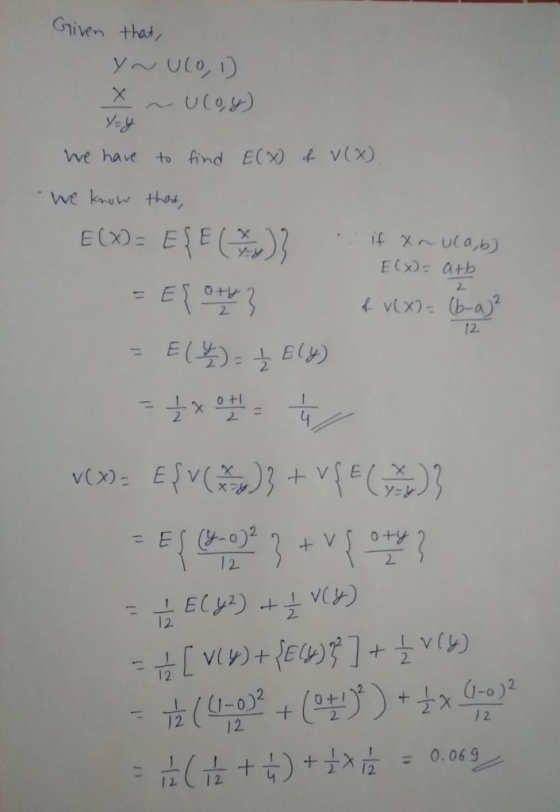 Given that,
Y ~ U(0, 1)
X/Y=y ~ U(0,y)
We have to find E(X) & V(X)
We know that,
E(X) = E{E(X/Y=y)}
if X ~ U(a,b)
E(X) = a+b/2
& V(X) = (b-a)²/12
= E{0+y/2}
= E(y/2) = 1/2 E(y)
= 1/2 × 0+1/2 = 1/4
V(X) = E{V(X/X=y)} + V{E(X/Y=y)}
= E{(y-0)²/12} + V{0+y/2}
= 1/12 E(y²) + 1/2 V(y)
= 1/12 [V(y) + {E(y)}²] + 1/2 V(y)
= 1/12 ((1-0)²/12 + (0+1/2)²) + 1/2 × (1-0)²/12
= 1/12 (1/12 + 1/4) + 1/2 × 1/12 = 0.069